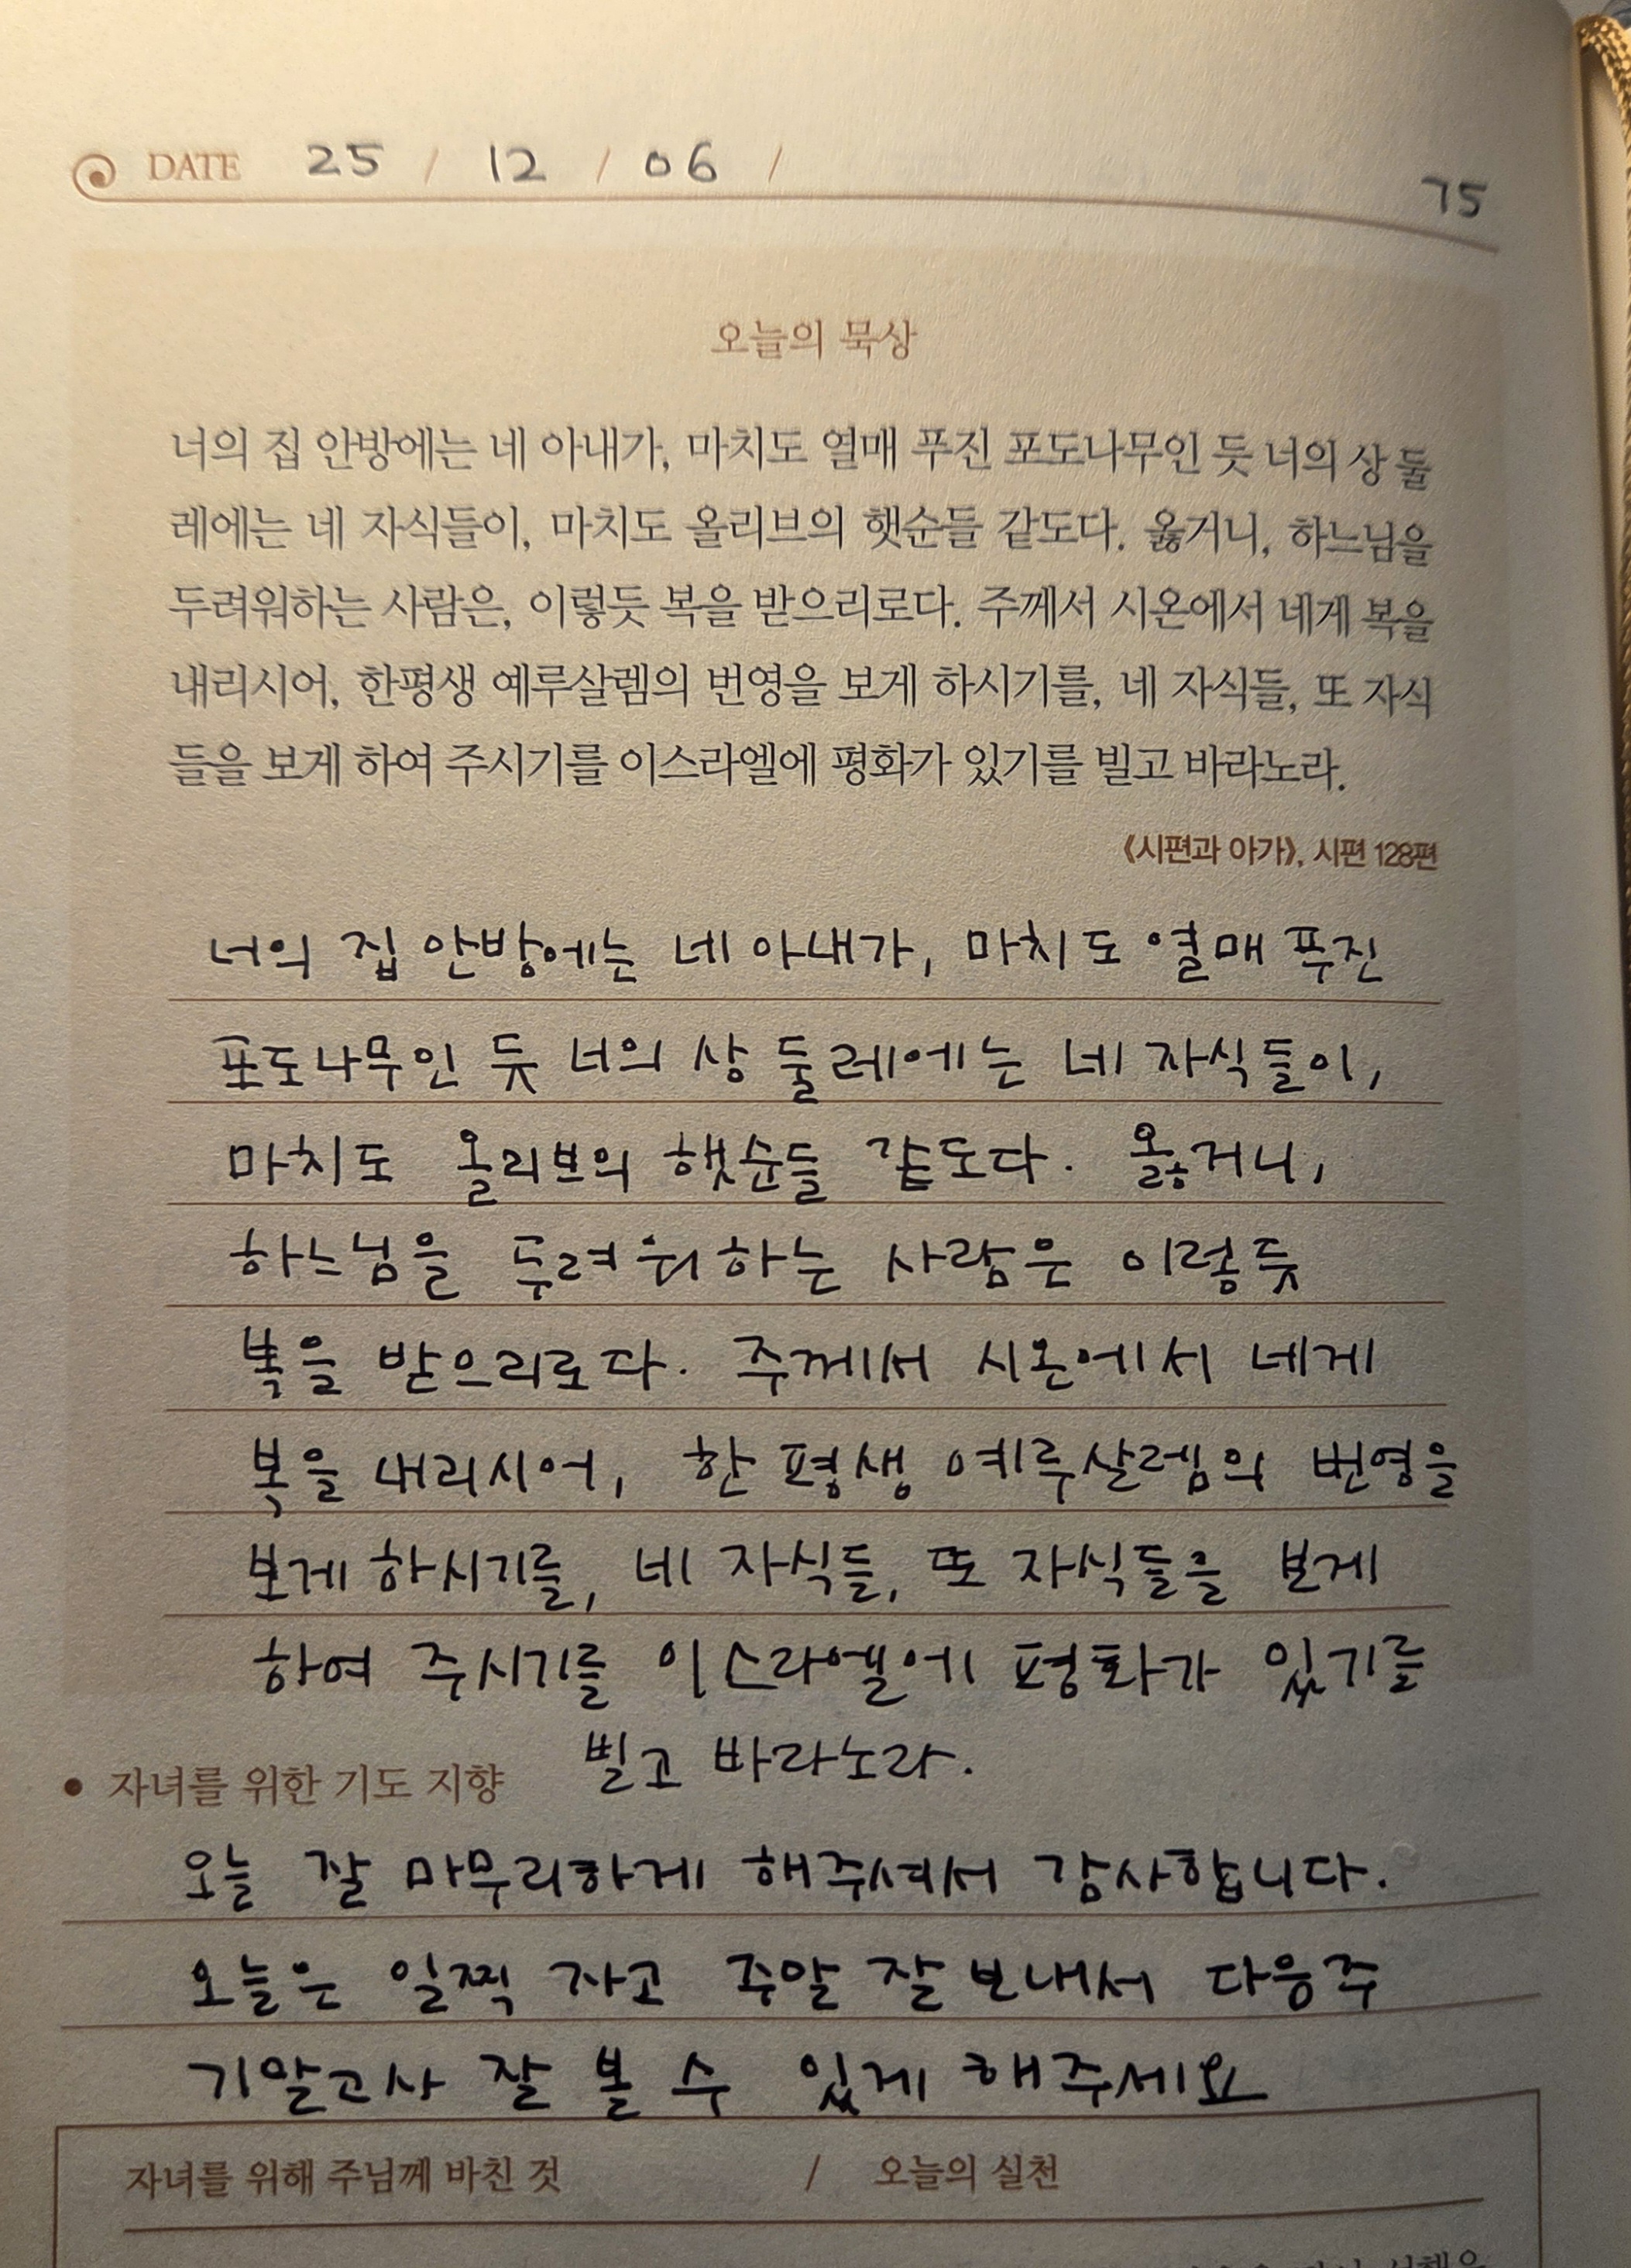 DATE 25 / 12 / 06 /
75
오늘의 묵상
너의 집 안방에는 네 아내가, 마치도 열매 푸진 포도나무인 듯 너의 상 둘
레에는 네 자식들이, 마치도 올리브의 햇순들 같도다. 옳거니, 하느님을
두려워하는 사람은, 이렇듯 복을 받으리로다. 주께서 시온에서 네게 복을
내리시어, 한평생 예루살렘의 번영을 보게 하시기를, 네 자식들, 또 자식
들을 보게 하여 주시기를 이스라엘에 평화가 있기를 빌고 바라노라.
《시편과 아가》, 시편 128편
너의 집 안방에는 네 아내가, 마치도 열매 푸진
포도나무인 듯 너의 상 둘레에는 네 자식들이,
마치도 올리브의 햇순들 같도다. 옳거니,
하느님을 두려워하는 사람은 이렇듯
복을 받으리로다. 주께서 시온에서 네게
복을 내리시어, 한평생 예루살렘의 번영을
보게 하시기를, 네 자식들, 또 자식들을 보게
하여 주시기를 이스라엘에 평화가 있기를
빌고 바라노라.
• 자녀를 위한 기도 지향
오늘 잘 마무리하게 해주셔서 감사합니다.
오늘은 일찍 자고 주말 잘 보내서 다음주
기말고사 잘 볼 수 있게 해주세요
자녀를 위해 주님께 바친 것 / 오늘의 실천